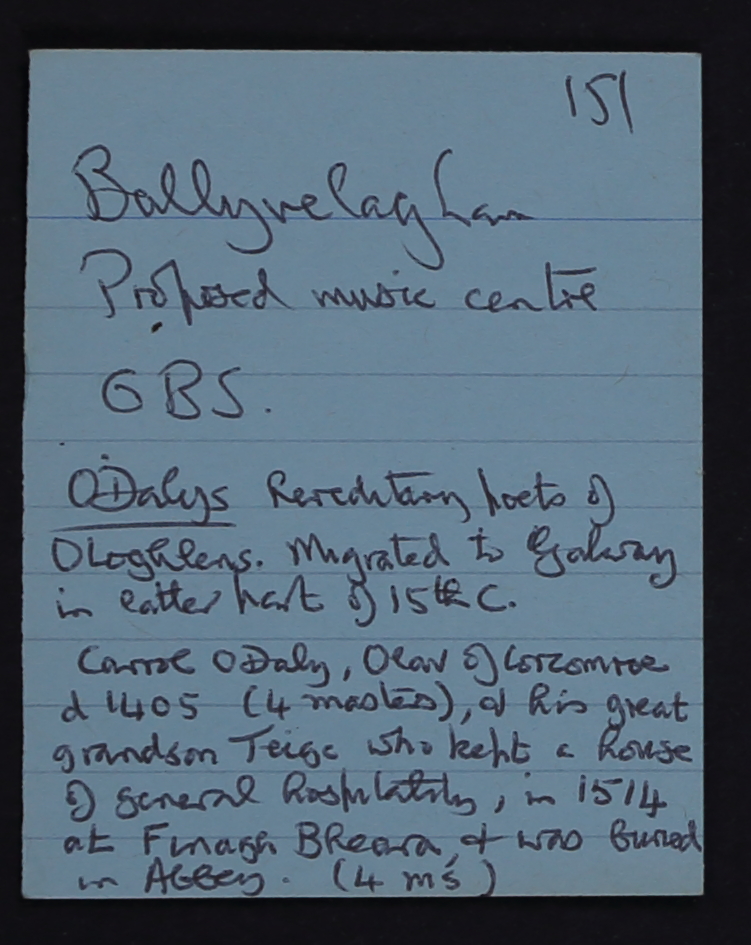 151
Ballyvelaghan
Proposed music centre
GBS.
ODalys Hereditary poets of
OLoghlens. Migrated to Galway
in latter part of 15th C.
Carrol ODaly, Olav of Corcomroe
d 1405 (4 masters), & his great
grandson Teige who kept a house
of general hospitality, in 1514
at Finagh Bheara, & was buried
in Abbey. (4 ms)